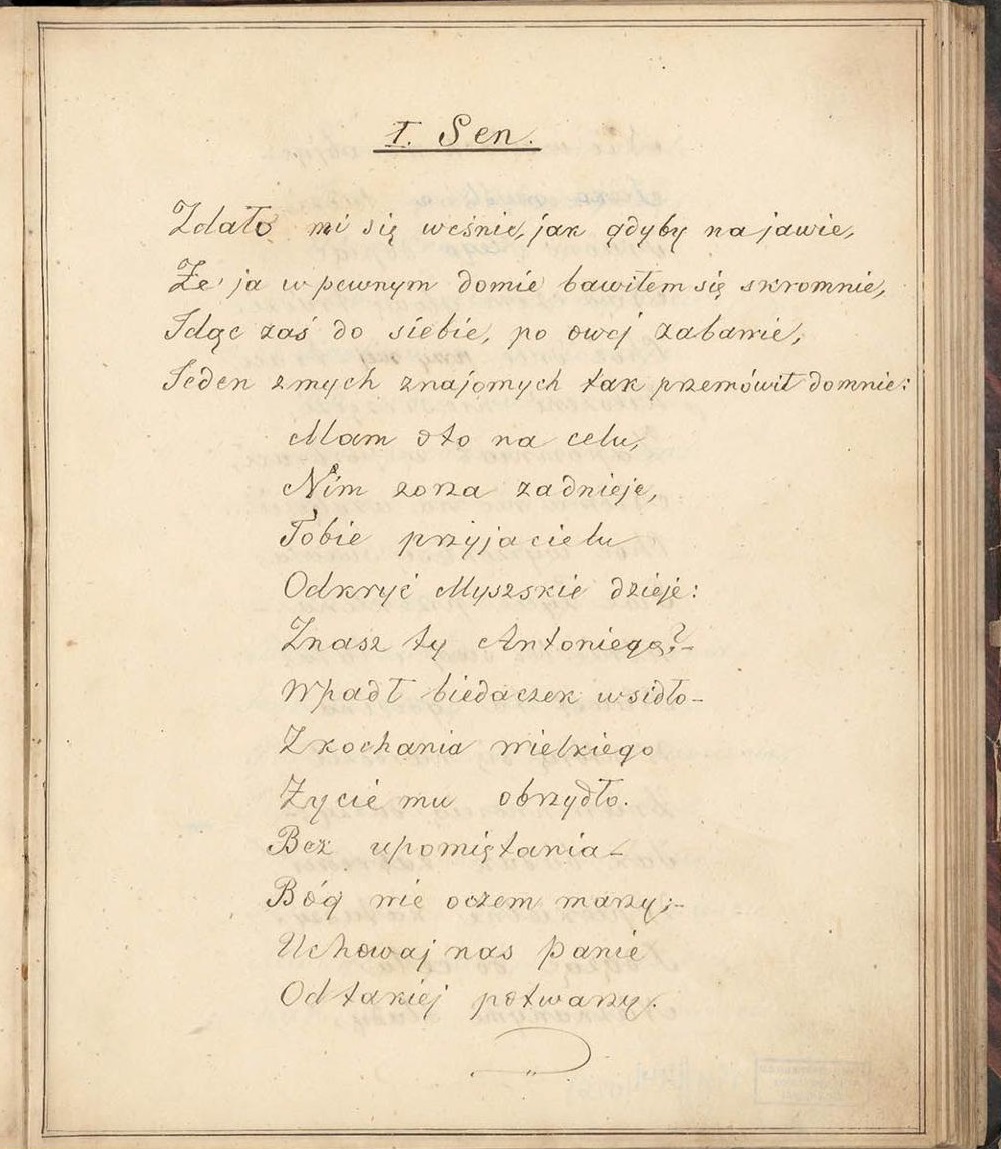 I. Sen.
Zdało mi się weśnie, jak gdyby na jawie,
Że ja w pewnym domie bawiłem się skromnie,
Idąc zaś do siebie, po owej zabawie,
Jeden zmych znajomych tak przemówił domnie:
Mam oto na celu,
Nim zorza zadnieje,
Tobie przyjacielu
Odkryć Myszskie dzieje:
Znasz ty Antoniego?-
Wpadł biedaczek w sidło-
Zkochania wielkiego
Życie mu obrzydło.
Bez upomiętania-
Bóg wie oczem marzy;-
Uchowaj nas Panie
Od takiej potwarzy.